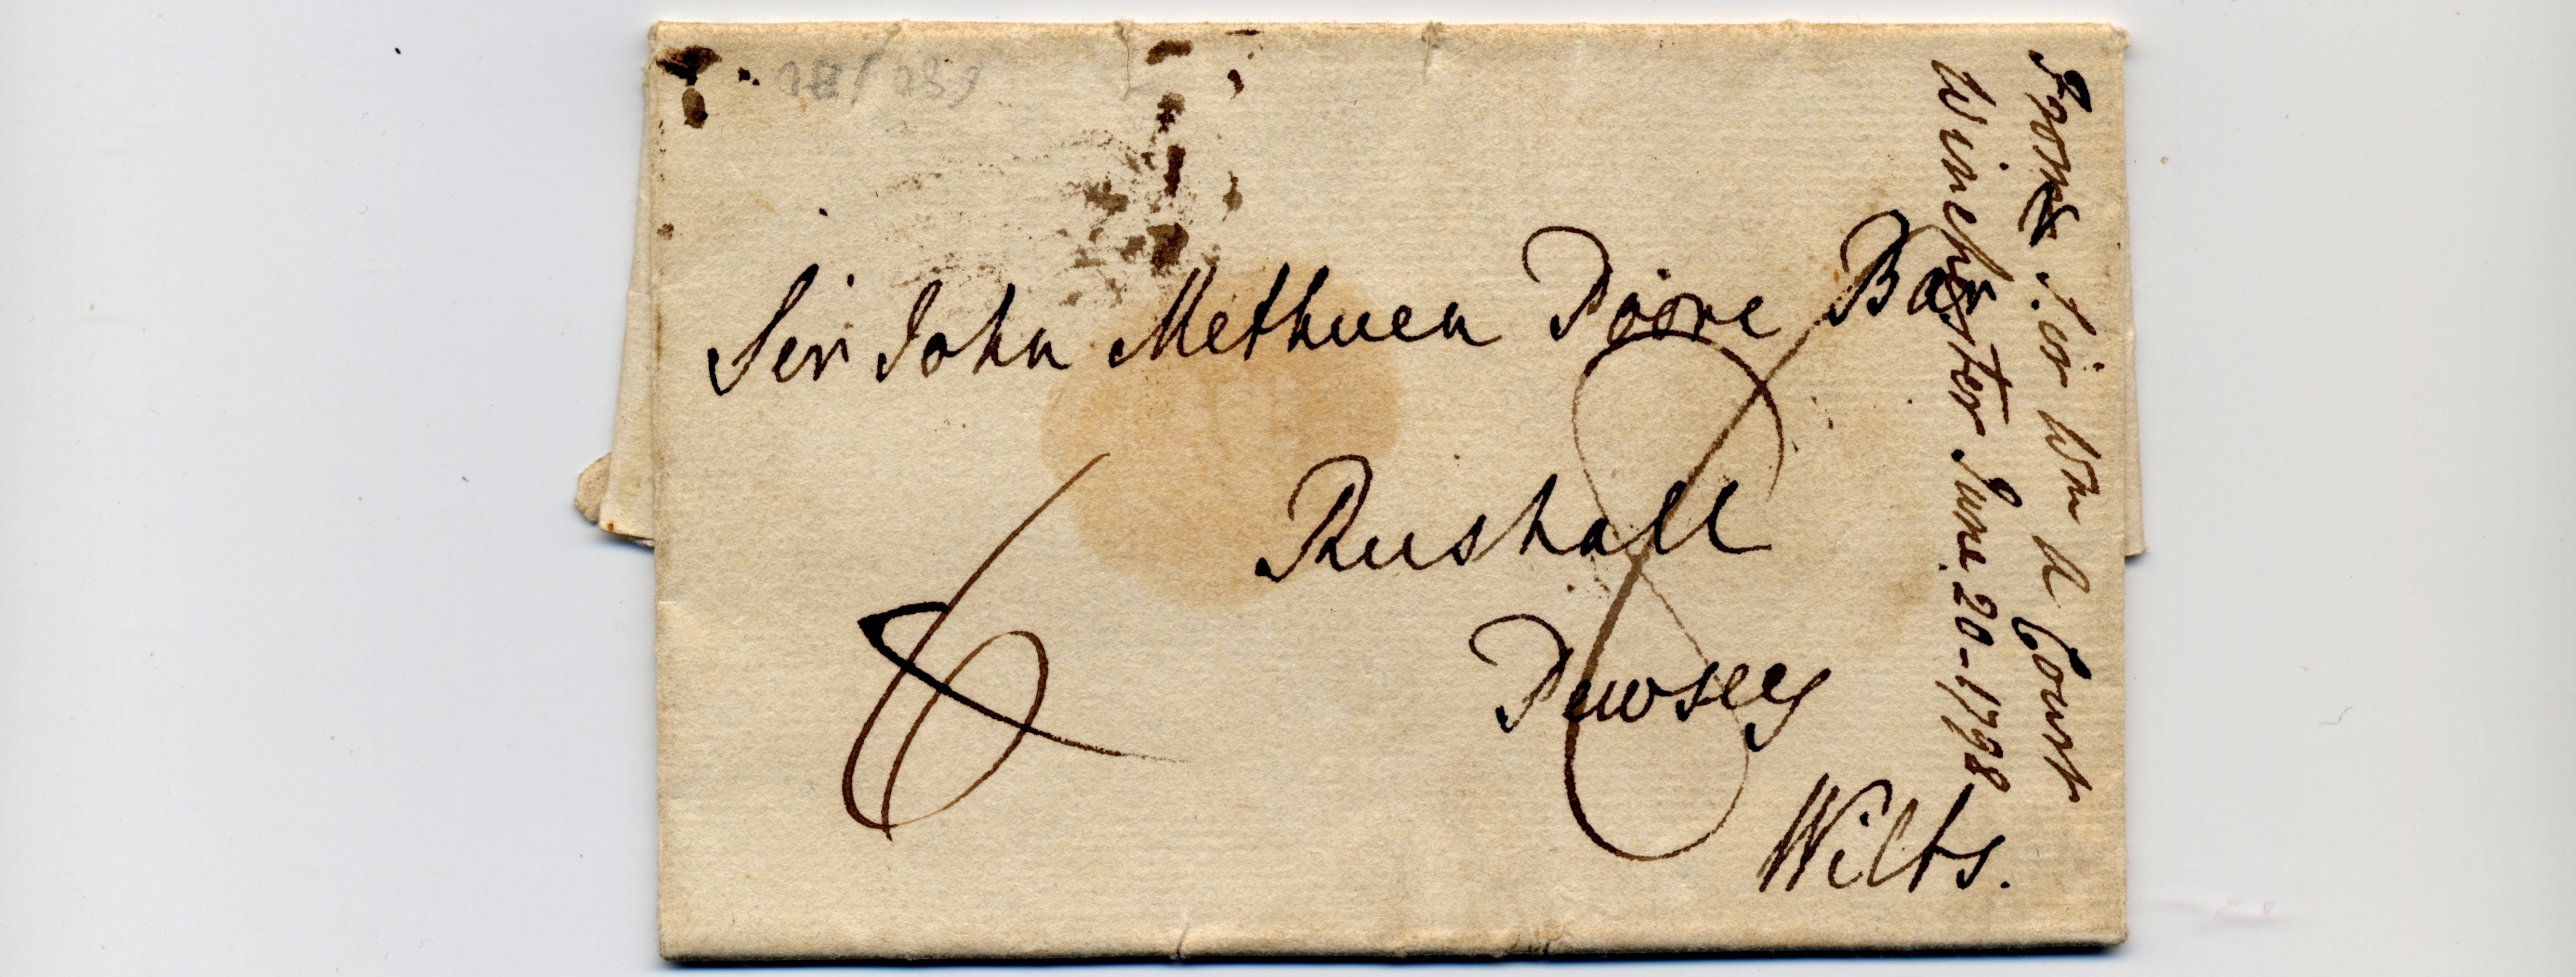 Sir John Methuen Poore Bar
Rushall
Pewsey
Wilts.
6
8
From Sir Wm A Court
Winchester June 20-1798